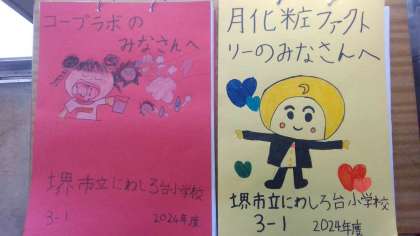 コープラボの
みなさんへ
堺市立にわしろ台小学校
3-1
2024年度
月化粧ファクト
リーのみなさんへ
堺市立にわしろ台小学校
3-1
2024年度